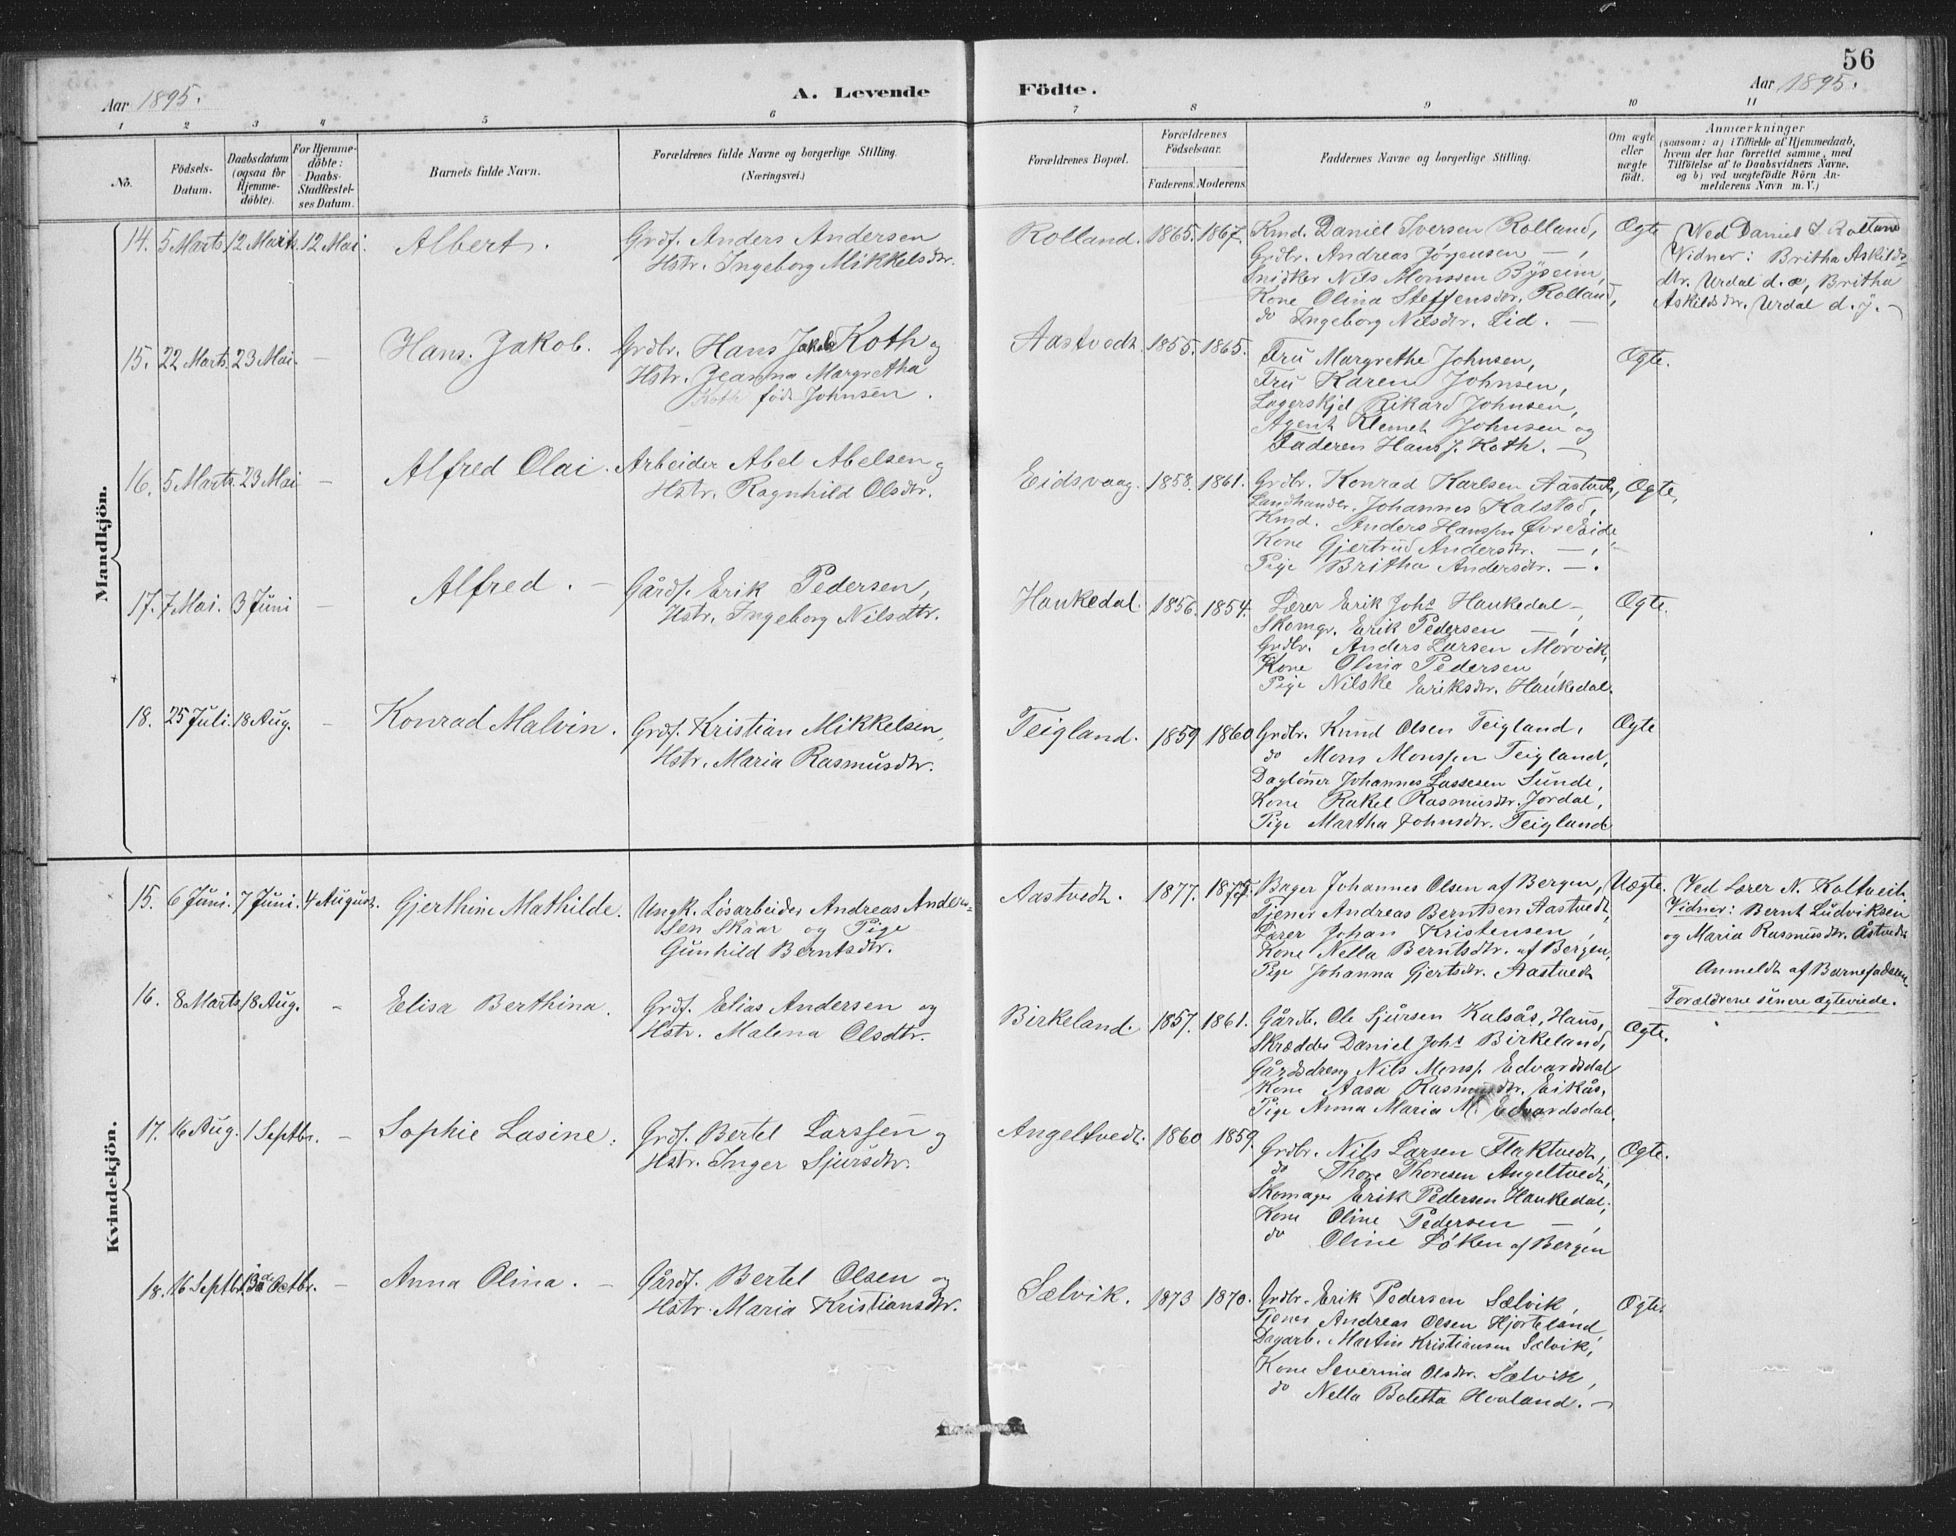 56
Aar 1895.
A. Levende Födte.
Aar 1895.
1 2 3 4 5 6 7 8 9 10 11
No.
Födsels-
Datum.
Daabsdatum
(ogsaa for
Hjemme-
döbte).
For Hjemme-
döbte:
Daabs-
Stadfæstel-
ses Datum.
Barnets fulde Navn.
Forældrenes fulde Navne og borgerlige Stilling.
(Næringsvei.)
Forældrenes Bopæl.
Forældrenes
Födselsaar.
Faderens. Moderens.
Faddernes Navne og borgerlige Stilling.
Om ægte
eller
uægte
födt.
Anmærkninger
(saasom: a) i Tilfælde af Hjemmedaab,
hvem der har forrettet samme, med
Tilföielse af to Daabsvidners Navne.
og b) ved uægtefödte Börn An-
melderens Navn m. V.)
Mandkjön.
14. 5 Marts 12 Marts. 12 Mai. Albert.
Grdf. Anders Andersen
Hstr. Ingeborg Mikkelsdtr.
Rolland. 1865. 1867.
Kmd. Daniel Iversen Rolland,
Grdbr. Andreas Jørgensen — ,
Snidker Nils Monssen Bÿseim,
Kone Olina Steffensdtr. Rolland,
do Ingeborg Nilsdtr. Lid. —
Ægte
Ved Daniel I Rolland
Vidner: Britha Askilds-
dtr. Urdal d.æ, Britha
Askildsdtr. Urdal d.ÿ. —
15. 22 Marts. 23 Mai. — Hans. Jakob.
Grdbr. Hans Jakob Koth og
Hstr. Jeanna Margretha
Koth född Johnsen.
Aastvedt. 1855. 1865.
Fru Margrethe Johnsen,
Fru Karen Johnsen,
Lagerskjd Rikard Johnsen,
Agent Klemet Johnsen og
Faderen Hans J. Koth. —
Ægte.
16. 5 Marts. 23 Mai — Alfred Olai.
Arbeider Abel Abelsen og
Hstr. Ragnhild Olsdtr.
Eidsvaag. 1858. 1861.
Grdbr. Konrad Karlsen Aastvedt,
Landhandler. Johannes Kalstad,
Kmd. Anders Hanssen Øvre Eide
Kone Gjertrud Andersdtr. — ,
Pige Britha Andersdtr. — .
Ægte.
17. 7 Mai. 3 Juni — Alfred. —
Gårdf. Erik Pedersen,
Hstr. Ingeborg Nilsdtr.
Haukedal. 1856. 1854.
Lærer Erik Johs Haukedal —,
Skomgr. Erik Pedersen — ,
Grdbr. Anders Larsen Morvik,
Kone Olina Pedersen,
Pige Nilske Eriksdtr. Haukedal.
Ægte.
18. 25 Juli. 18 Aug. — Konrad Malvin.
Grdf. Kristian Mikkelsen,
Hstr. Maria Rasmusdtr.
Teigland. 1859 1860
Grdbr. Knud Olsen Teigland,
do Mons Monssen Teigland,
Dagløner Johannes Lassesen Sunde,
Kone Rakel Rasmusdtr. Jordal,
Pige Martha Johnsdtr. Teigland
Ægte
Kvindekjön.
15. 6 Juni. 7 Juni. 4 August. Gjerthine Mathilde.
Ungk. Løsarbeider Andreas Ander-
sen Skaar og Pige
Gunhild Berntsdtr.
Aastvedt. 1877.
Bager Johannes Olsen af Bergen,
Tjener Andreas Berntsen Aastvedt,
Lærer Johan Kristensen,
Kone Nella Berntsdtr. af Bergen,
Pige Johanna Gjertsdtr. Aastvedt
Uægte.
Ved Lærer N. Koltveit.
Vidner: Bernt Ludviksen
og Maria Rasmusdtr. Åstvedt
Anmeldt af Barnefaderen.
Forældrene senere ægteviede.
16. 8 Marts 18 Aug. — Elisa Berthina.
Grdf. Elias Andersen og
Hstr. Malena Olsdtr.
Birkeland. 1857. 1861.
Gårdb. Ole Sjursen Kalsås, Haus,
Skrædder Daniel Johs Birkeland,
Gårdsdreng Nils Monss. Edvardsdal
Kone Aasa Rasmusdtr. Eikås,
Pige Anna Maria M. Edvardsdal.
Ægte.
17. 16 Aug. 1 Septbr. — Sophie Lasine.
Grdf. Bertel Larssen og
Hstr. Inger Sjursdtr.
Angeltvedt. 1860 1859.
Grdbr. Nils Larsen Flaktvedt,
do Thore Thoresen Angeltvedt,
Skomager Erik Pedersen Haukedal,
Kone Oline Pedersen — ,
do Oline Løken af Bergen
Ægte.
18. 16 Septbr. 13de Octbr. — Anna Olina. —
Gårdf. Bertel Olsen og
Hstr. Maria Kristiansdtr.
Sælvik. 1873 1870.
Grdbr. Erik Pedersen Sælvik,
Tjener Andreas Olsen Hjorteland,
Dagarb. Martin Kristiansen Sælvik,
Kone Severina Olsdtr. Sælvik,
do Nella Boletta Hovland. —
Ægte.